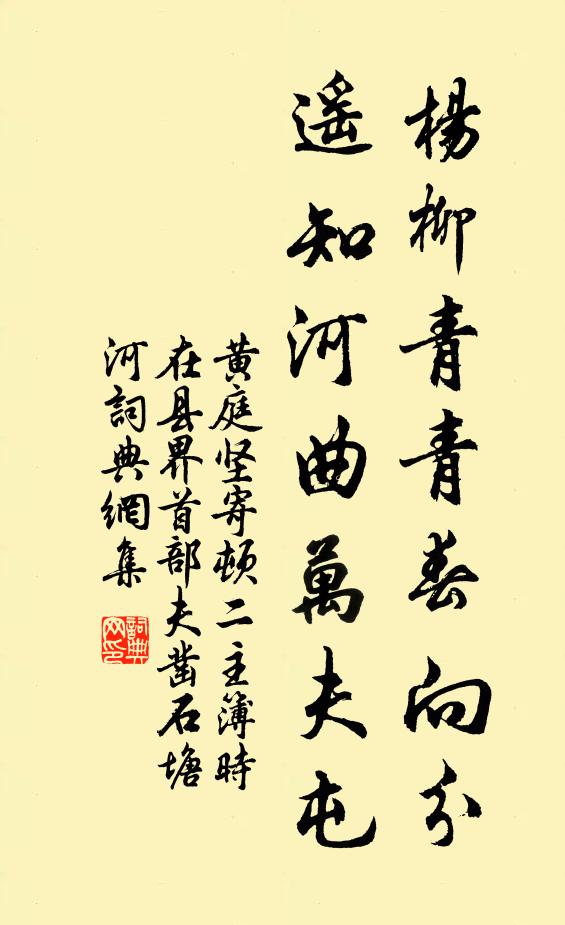 楊柳青青春向分
遥知河曲萬夫屯
黄庭坚寄頓二主簿時
在县界首部夫凿石塘
河詞典網集
詞典网印